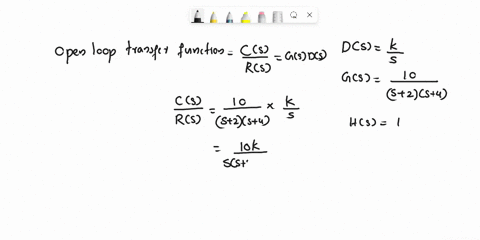 Open loop transfer function = C(s)/R(s) = G(s)D(s)
D(s) = k/s
G(s) = 10/((s+2)(s+4))
C(s)/R(s) = 10/((s+2)(s+4)) × k/s
H(s) = 1
= 10k/(s(s+